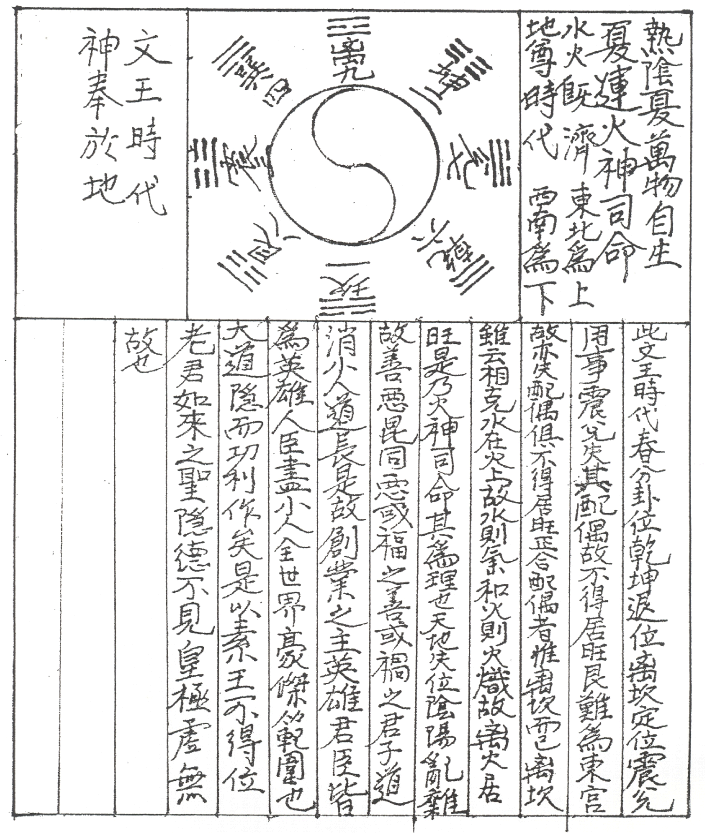 熱陰夏萬物自生
夏運火神司命
水火旣濟 東北爲上
地尊時代 西南爲下
離九
坤二
兌七
乾六
坎一
艮八
震三
巽四
文王時代
神奉於地
此文王時代春分卦位乾坤退位离坎定位震兌
用事震兌失其配偶故不得居旺艮雖爲東宮
故亦失配偶俱不得居旺正合配偶者惟离坎而已离坎
雖云相克水在火上故水則氣和火則火熾故离火居
旺是乃火神司命其爲理也天地失位陰陽亂雜
故善惡昆同惡或福之善或禍之君子道
消小人道長是故創業之主英雄君臣皆
爲英雄人臣盡小人全世界豪傑的範圍也
大道隱而功利作矣是以素王不得位
老君如來之聖隱德不見皇極虛無
故也